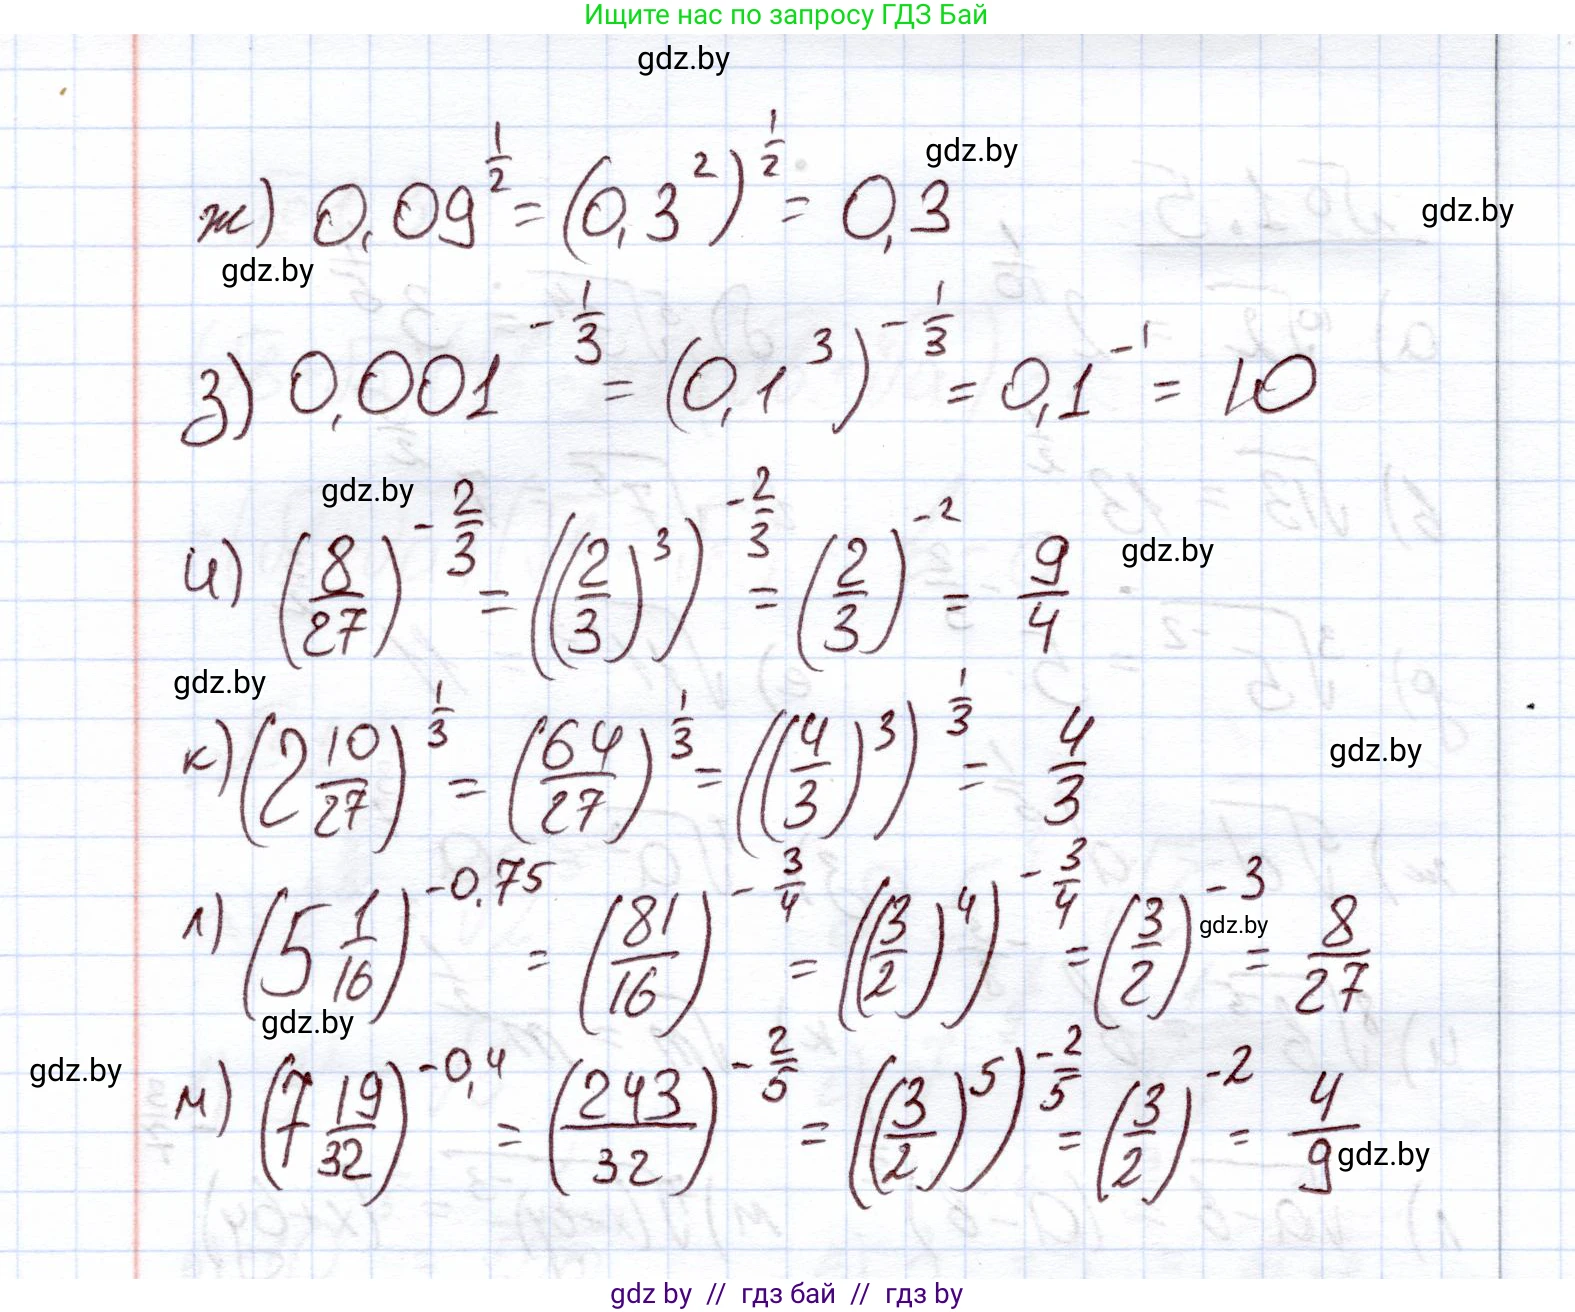 Ищите нас по запросу ГДЗ Бай
gdz.by
ж) 0,09^(1/2) = (0,3^2)^(1/2) = 0,3
gdz.by
gdz.by
gdz.by
з) 0,001^(-1/3) = (0,1^3)^(-1/3) = 0,1^(-1) = 10
gdz.by
и) (8/27)^(-2/3) = ((2/3)^3)^(-2/3) = (2/3)^(-2) = 9/4
gdz.by
gdz.by
к) (2 10/27)^(1/3) = (64/27)^(1/3) = ((4/3)^3)^(1/3) = 4/3
gdz.by
л) (5 1/16)^(-0,75) = (81/16)^(-3/4) = ((3/2)^4)^(-3/4) = (3/2)^(-3) = 8/27
gdz.by
gdz.by
gdz.by
м) (7 19/32)^(-0,4) = (243/32)^(-2/5) = ((3/2)^5)^(-2/5) = (3/2)^(-2) = 4/9
gdz.by
gdz by // гдз бай // гдз by